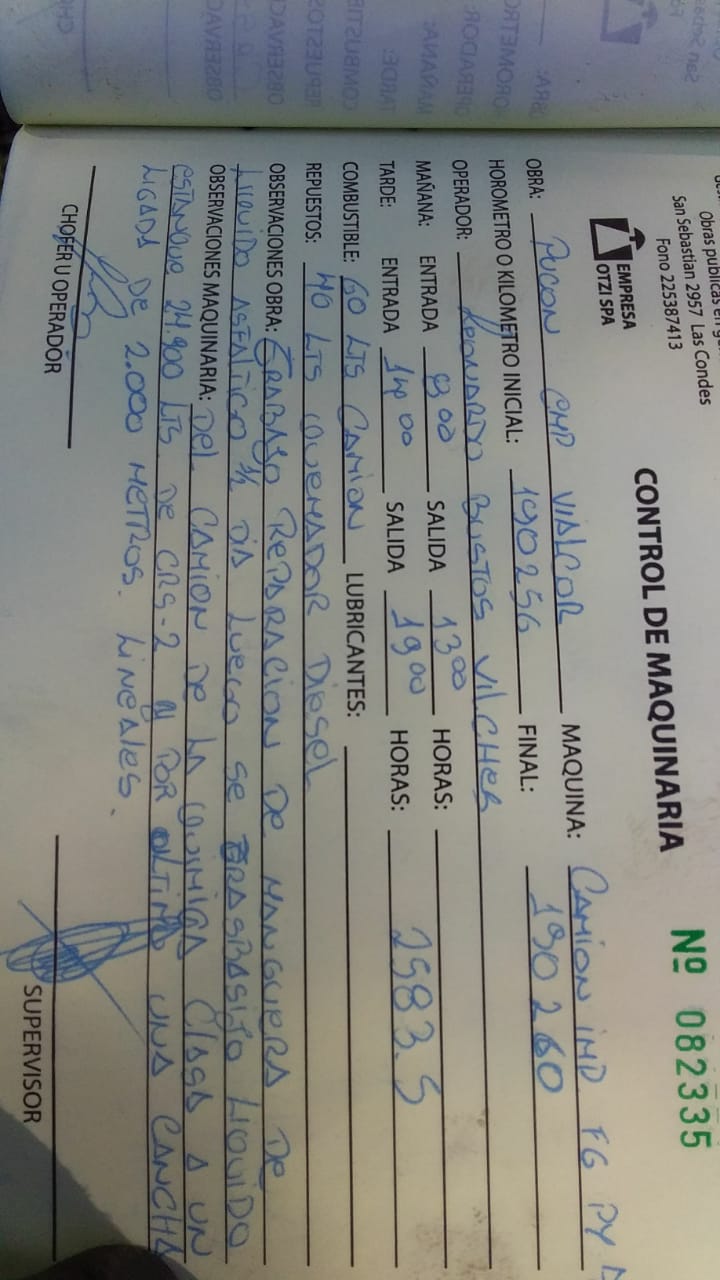 Obras publicas en g
San Sebastian 2957 Las Condes
Fono 225387413
EMPRESA
OTZI SPA
CONTROL DE MAQUINARIA
Nº 082335
OBRA: PUCON CMP VIALCOR MAQUINA: CAMION IMP FG PY
HOROMETRO O KILOMETRO INICIAL: 190256 FINAL: 190260
OPERADOR: LEONARDO BUSTOS VILCHES
MAÑANA: ENTRADA 8300 SALIDA 1300 HORAS:
TARDE: ENTRADA 1400 SALIDA 1900 HORAS: 2983.5
COMBUSTIBLE: 60 LTS CAMION LUBRICANTES:
REPUESTOS: 40 LTS QUEMADOR DIESEL
OBSERVACIONES OBRA: TRABAJO REPARACION DE MANGUERA DE
LIQUIDO ASFALTICO 1/2 DIA LUEGO SE TRASBASIJO LIQUIDO
OBSERVACIONES MAQUINARIA: DEL CAMION DE LA QUIMICA CIASA A UN
ESTANQUE 24.900 LTS DE CRS-2 Y POR ULTIMO UNA CANCHA
LIGADA DE 2.000 METROS. LINEALES.
CHOFER U OPERADOR SUPERVISOR